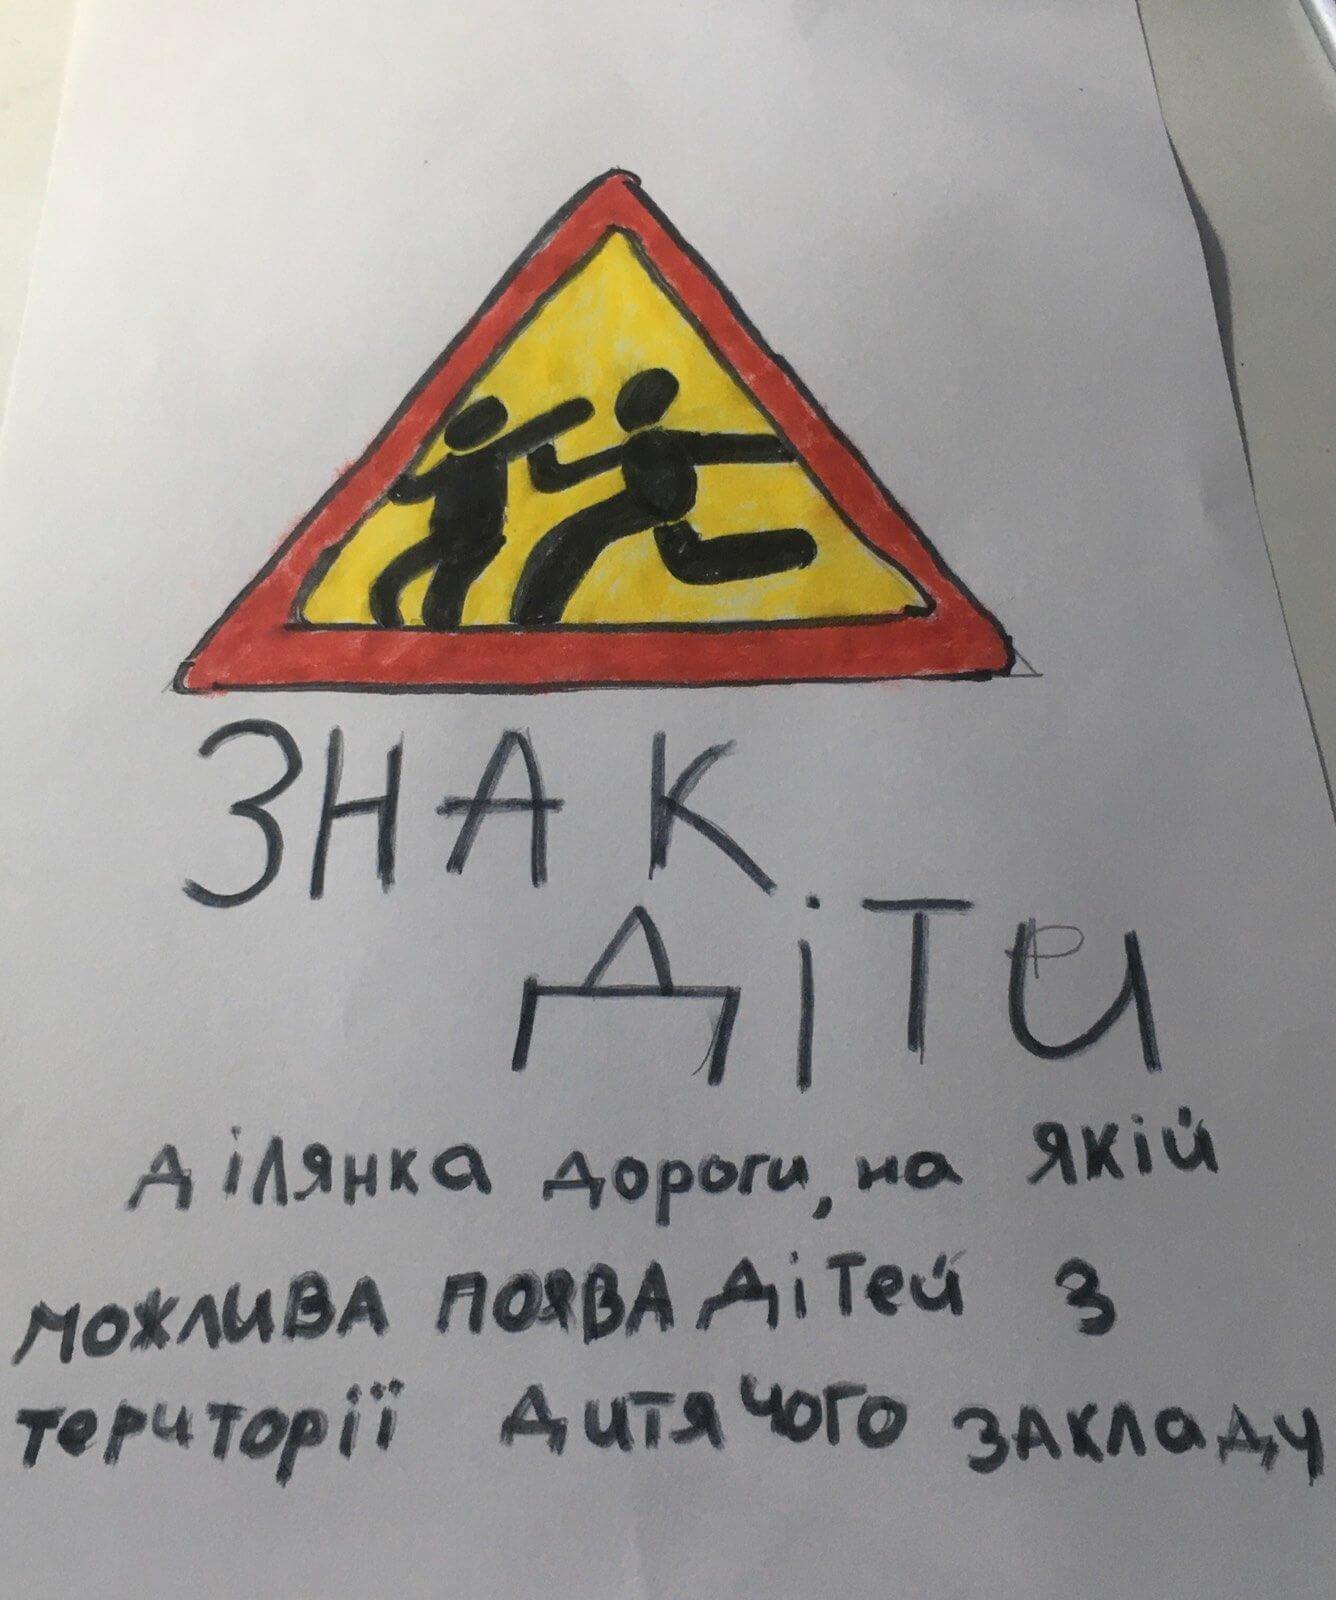 ЗНАК
ДІТИ
ділянка дороги, на якій
можлива поява дітей з
території дитячого закладу